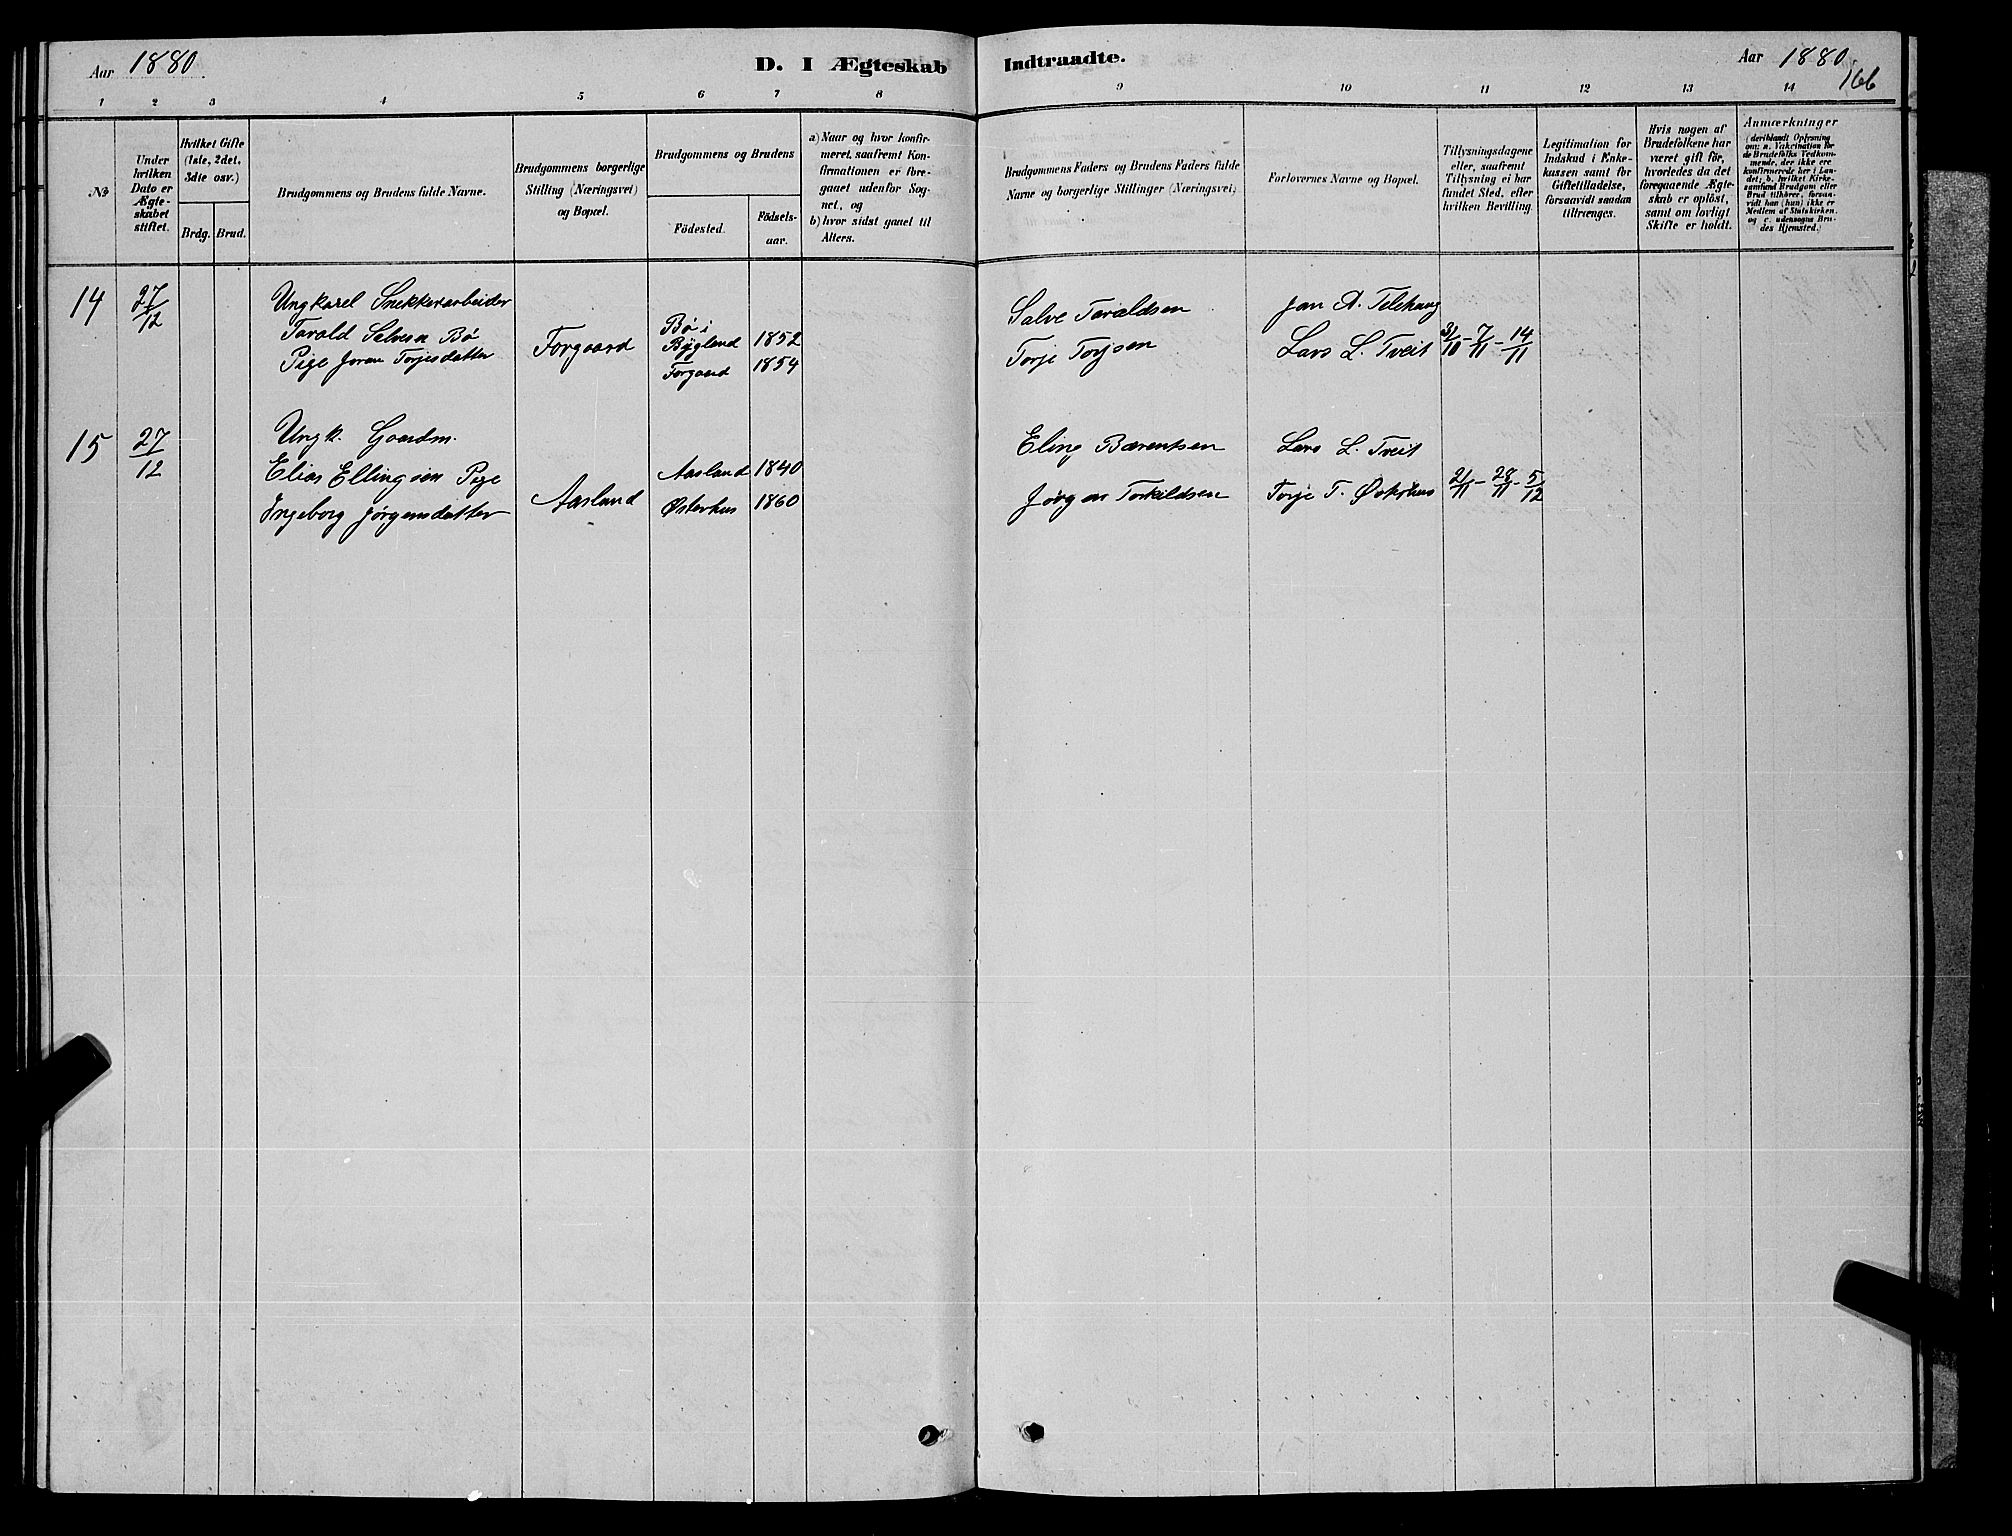 Aar 1880.
D. I Ægteskab Indtraadte.
Aar 1880
166
1 2 3 4 5 6 7 8 9 10 11 12 13 14
No
Under
hvilken
Dato er
Ægte-
skabet
stiftet.
Hvilket Gifte
(1ste, 2det,
3die osv.)
Brdg. Brud.
Brudgommens og Brudens fulde Navne.
Brudgommens borgerlige
Stilling (Næringsvei)
og Bopæl.
Brudgommens og Brudens
Födested.
Födsels-
aar.
a) Naar og hvor konfir-
meret, saafremt Kon-
firmationen er fore-
gaaet udenfor Sog-
net, og
b) hvor sidst gaaet til
Alters.
Brudgommens Faders og Brudens Faders fulde
Navne og borgerlige Stillinger (Næringsvei)
Forlovernes Navne og Bopæl.
Tillysningsdagene
eller, saafremt
Tillysning ei har
fundet Sted, efter
hvilken Bevilling.
Legitimation for
Indskud i Enke-
kassen samt for
Giftetilladelse,
forsaavidt saadan
tiltrænges.
Hvis nogen af
Brudefolkene har
været gift för,
hvorledes da det
foregaaende Ægte-
skab er oplöst,
samt om lovligt
Skifte er holdt.
Anmærkninger
(deriblandt Oplysning
om: a. Vakcination for
de Brudefolks Vedkom-
mende, der ikke ere
konfirmerede her i Lan-
det; b. hvilket Kirke-
samfund Brudgom eller
Brud tilhörer, forsaa-
vidt han (hun) ikke er
Medlem af Statskirken.
og c. udensogns Bru-
des Hjemsted.)
14 27/12 Ungkarel Snekkerarbeider
Tarald Salvesen Bø
Pige Joran Torjesdatter
Forgaard
Bø i
Bygland 1852
Forgaard 1854
Salve Taraldsen
Torje Torjsen
Jan A. Telehaug
Lars L. Tveit
31/10 - 7/11 - 14/11
15 27/12 Ungk. Gaardm.
Elias Ellingsen Pige
Ingeborg Jørgensdatter
Aasland
Aasland 1840
Østerhus 1860
Eling Bærentsen
Jørgen Torkildsen
Lars L. Tveit
Torje T.
21/11 - 28/11 - 5/12